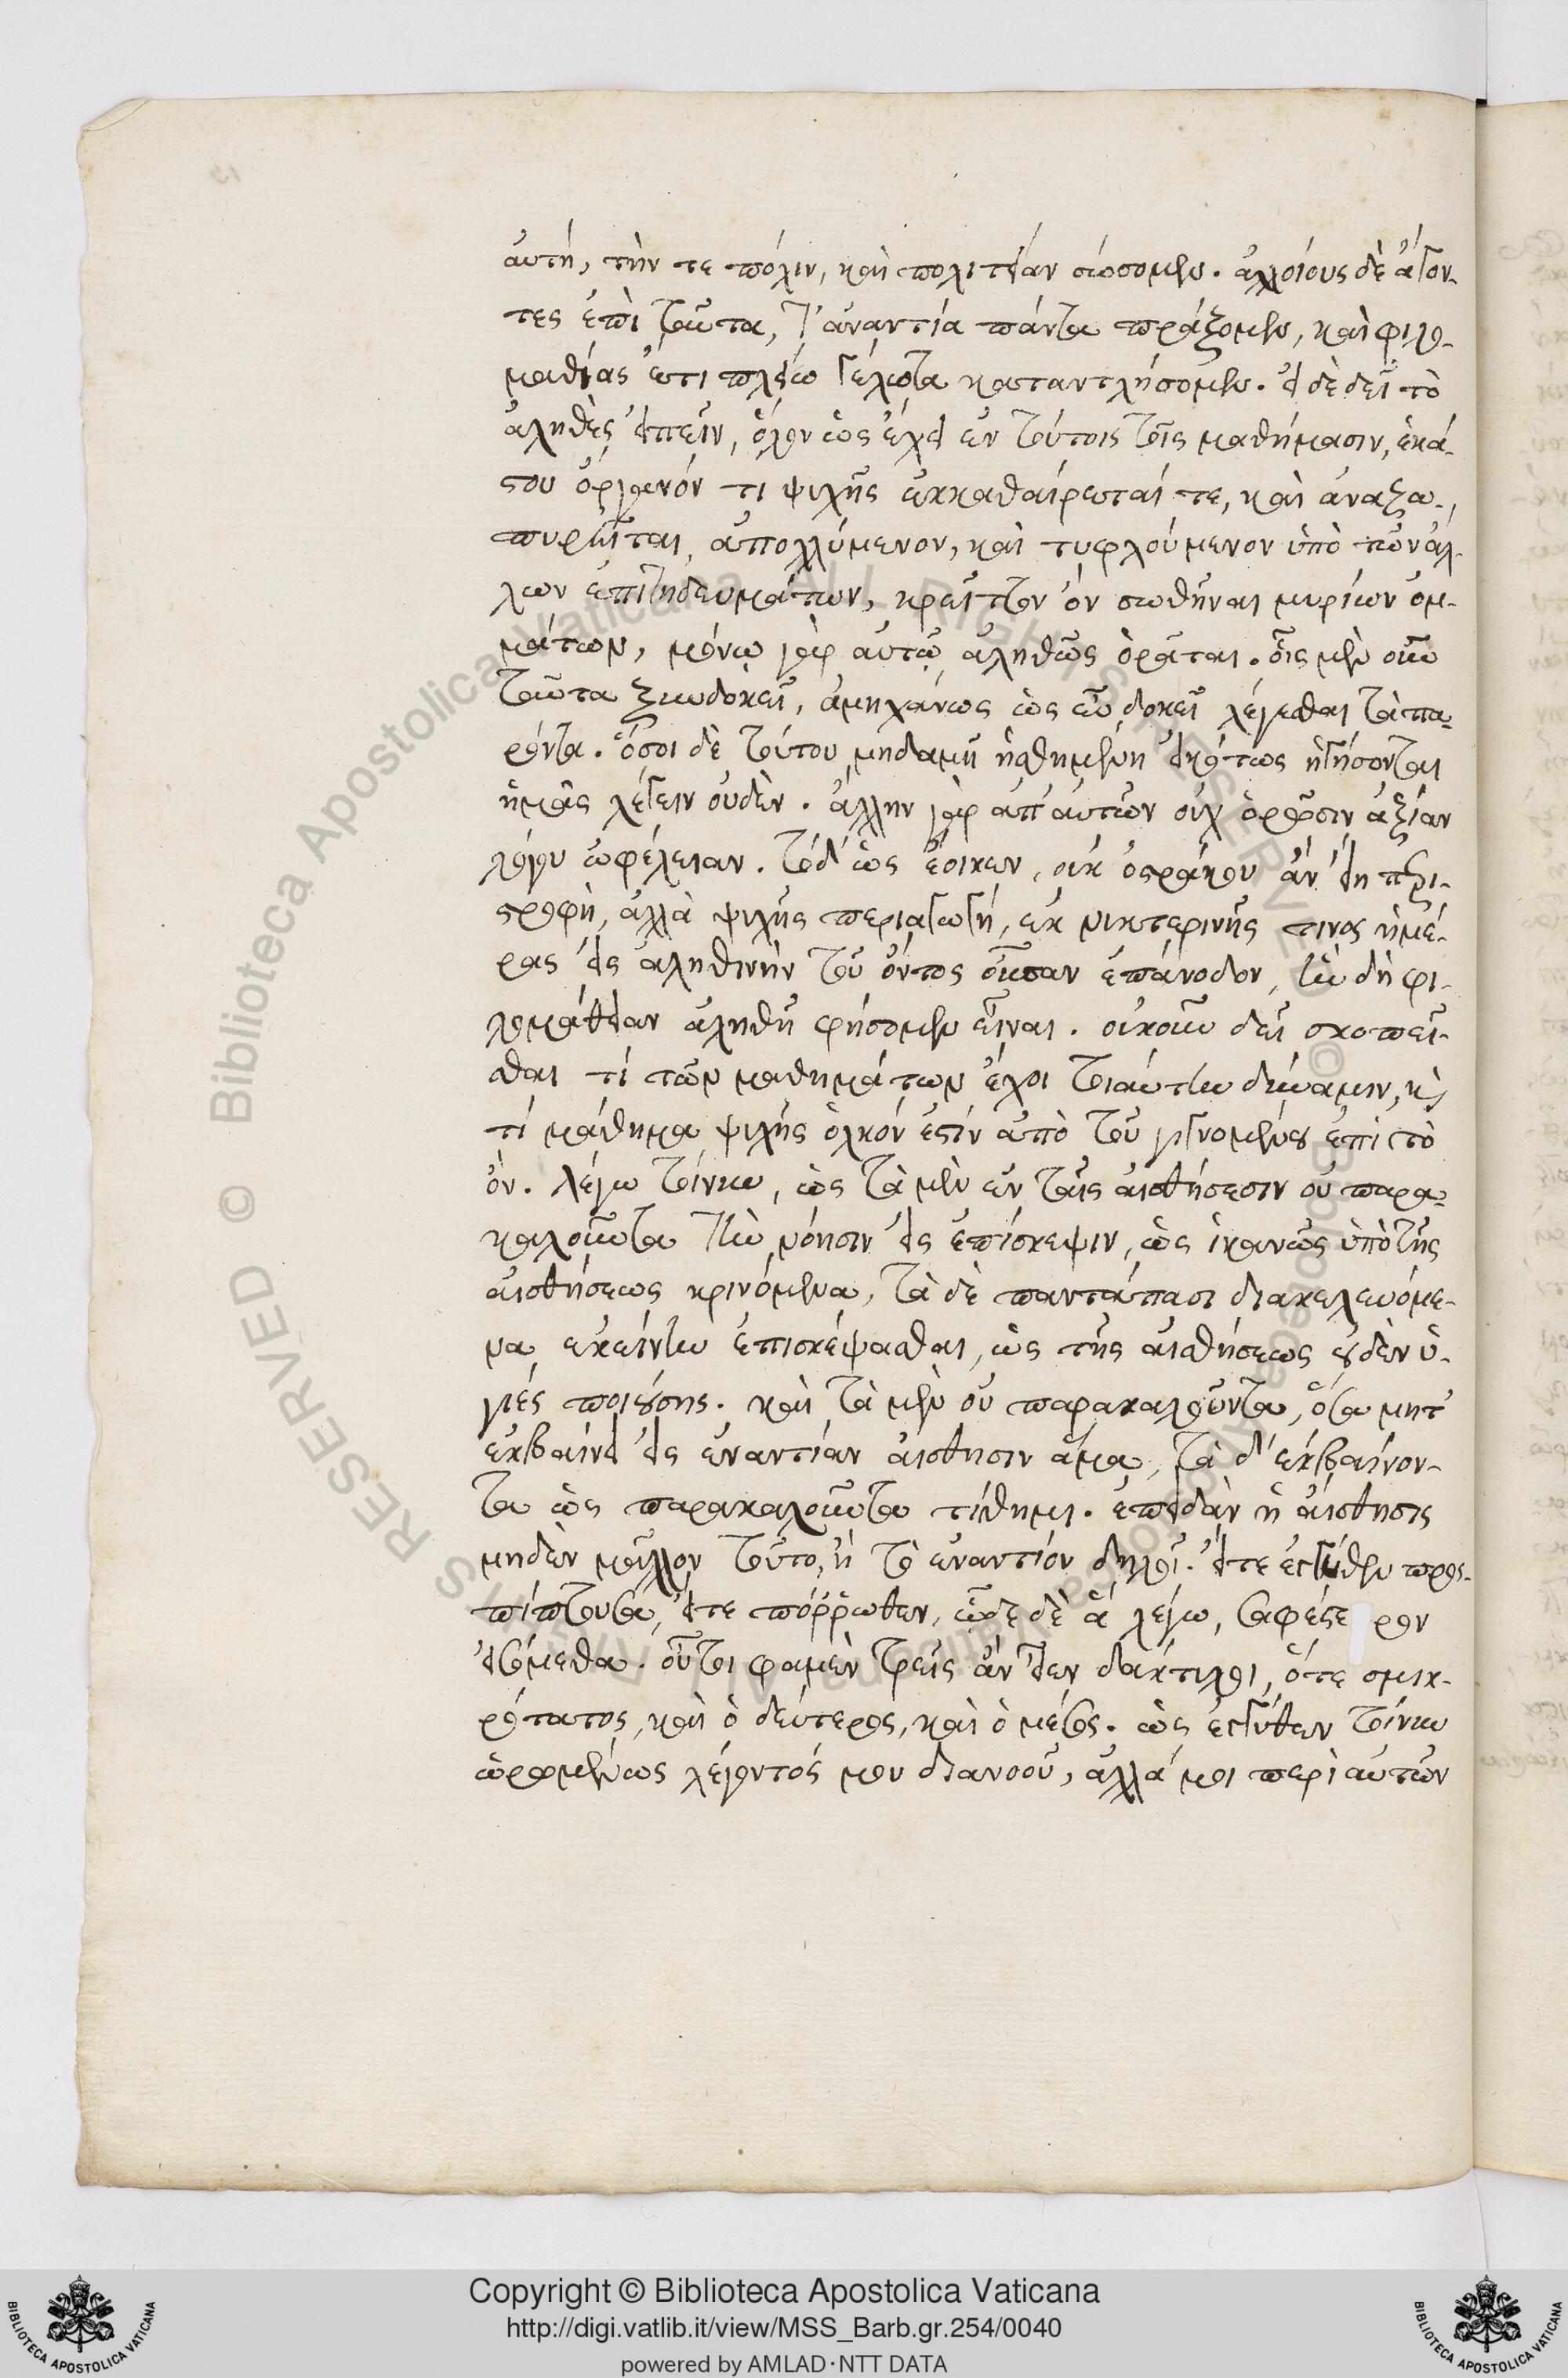 αὐτὴ, τήν τε πόλιν, καὶ πολιτείαν σώσομεν. ἀλλοίους δὲ ἄγον-
τες ἐπὶ ταῦτα, τ'ἀναντία πάντα πράξομεν, καὶ φιλο-
μαθίας ἔτι πλείω γέλωτα καταντλήσομεν. εἰ δὲ δεῖ τὸ
ἀληθὲς εἰπεῖν, ὅλον ὡς ἔχει ἐν τούτοις τοῖς μαθήμασιν, ἑκά-
στου ὄργανόν τι ψυχῆς ἐκκαθαίρεταί τε, καὶ ἀναζω-
πυρεῖται, ἀπολλύμενον, καὶ τυφλούμενον ὑπὸ τῶν ἄλ-
λων ἐπιτηδευμάτων, κρεῖττον ὂν σωθῆναι μυρίων ὀμ-
μάτων, μόνω γὰρ αὐτῷ ἀληθῶς ὁρᾶται. οἷς μὲν οὖν
ταῦτα ξυνδοκεῖ, ἀμηχάνως ὡς εὖ δοκεῖ λέγεσθαι τὰ πα-
ρόντα. ὅσοι δὲ τούτου μηδαμῆ ἠσθημένη εἰκότως ἡγήσονται
ἡμᾶς λέγειν οὐδὲν. ἄλλην γὰρ ἀπ' αὐτῶν οὐχ ὁρῶσιν ἀξίαν
λόγου ὠφέλειαν. τόδ' ὡς ἔοικεν, οὐκ ὀστράκου ἂν εἴη περι-
στροφὴ, ἀλλὰ ψυχῆς περιαγωγὴ, ἐκ νυκτερινῆς τινος ἡμέ-
ρας εἰς ἀληθινὴν τοῦ ὄντος οὖσαν ἐπάνοδον, ἣν δὴ φι-
λομάθειαν ἀληθῆ φήσομεν εἶναι. οὐκοῦν δεῖ σκοπεῖ-
σθαι τί τῶν μαθημάτων ἔχοι τοιαύτην δύναμιν, κὶ
τί μάθημα ψυχῆς ὁλκόν ἐστὶν ἀπὸ τοῦ γιγνομένου ἐπὶ τὸ
ὄν. λέγω τοίνυν, ὡς τὰ μὲν ἐν ταῖς αἰσθήσεσιν οὐ παρα-
καλοῦντα τὴν νόησιν εἰς ἐπίσκεψιν, ὡς ἱκανῶς ὑπὸ τῆς
αἰσθήσεως κρινόμενα, τὰ δὲ παντάπασι διακελευόμε-
να ἐκείνην ἐπισκέψασθαι, ὡς τῆς αἰσθήσεως οὐδὲν ὑ-
γιὲς ποιούσης. καὶ τὰ μὲν οὐ παρακαλοῦντα, ὅσα μητ'
ἐκβαίνει εἰς ἐναντίαν αἴσθησιν ἅμα, τὰ δ' ἐκβαίνον-
τα ὡς παρακαλοῦντα τίθημι. ἐπειδὰν ἡ αἴσθησις
μηδὲν μᾶλλον τοῦτο, ἢ τὸ ἐναντίον δηλοῖ. εἴτε ἐγγύθεν προς-
πίπτουσα, εἴτε πόῤῥωθεν, ὧδε δὲ ἃ λέγω, σαφέστε ρον
εἰσόμεθα. οὗτοι φαμὲν τρεῖς ἂν εἶεν δάκτυλοι, ὅτε σμικ-
ρότατος, καὶ ὁ δεύτερος, καὶ ὁ μέσος. ὡς ἐγγύθεν τοίνυν
ὡρομένως λέγοντός μου διανοοῦ, ἀλλά μοι περὶ αὐτῶν
Copyright © Biblioteca Apostolica Vaticana
http://digi.vatlib.it/view/MSS_Barb.gr.254/0040
powered by AMLAD·NTT DATA